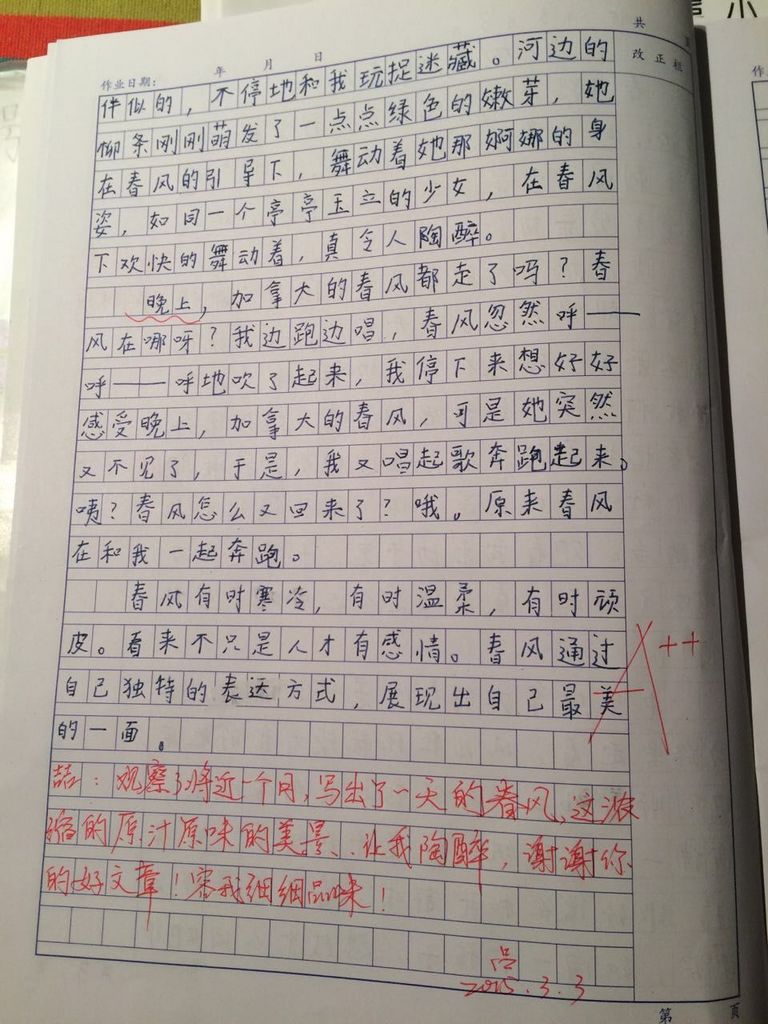 小
共
页
作业日期：
年 月 日
改正栏
伴似的，不停地和我玩捉迷藏。河边的
柳条刚刚萌发了一点点绿色的嫩芽，她
在春风的引导下，舞动着她那婀娜的身
姿，如同一个亭亭玉立的少女，在春风
下欢快的舞动着，真令人陶醉。
晚上，加拿大的春风都走了吗？春
风在哪呀？我边跑边唱，春风忽然呼——
呼——呼地吹了起来，我停下来想好好
感受晚上，加拿大的春风，可是她突然
又不见了，于是，我又唱起歌奔跑起来。
咦？春风怎么又回来了？哦。原来春风
在和我一起奔跑。
春风有时寒冷，有时温柔，有时顽
皮。看来不只是人才有感情。春风通过
自己独特的表达方式，展现出自己最美
的一面。
A++
喆：观察了将近一个月，写出了一天的春风，这浓
缩的原汁原味的美景、让我陶醉，谢谢你
的好文章！容我细细品味！
吕
2015.3.3
第 页